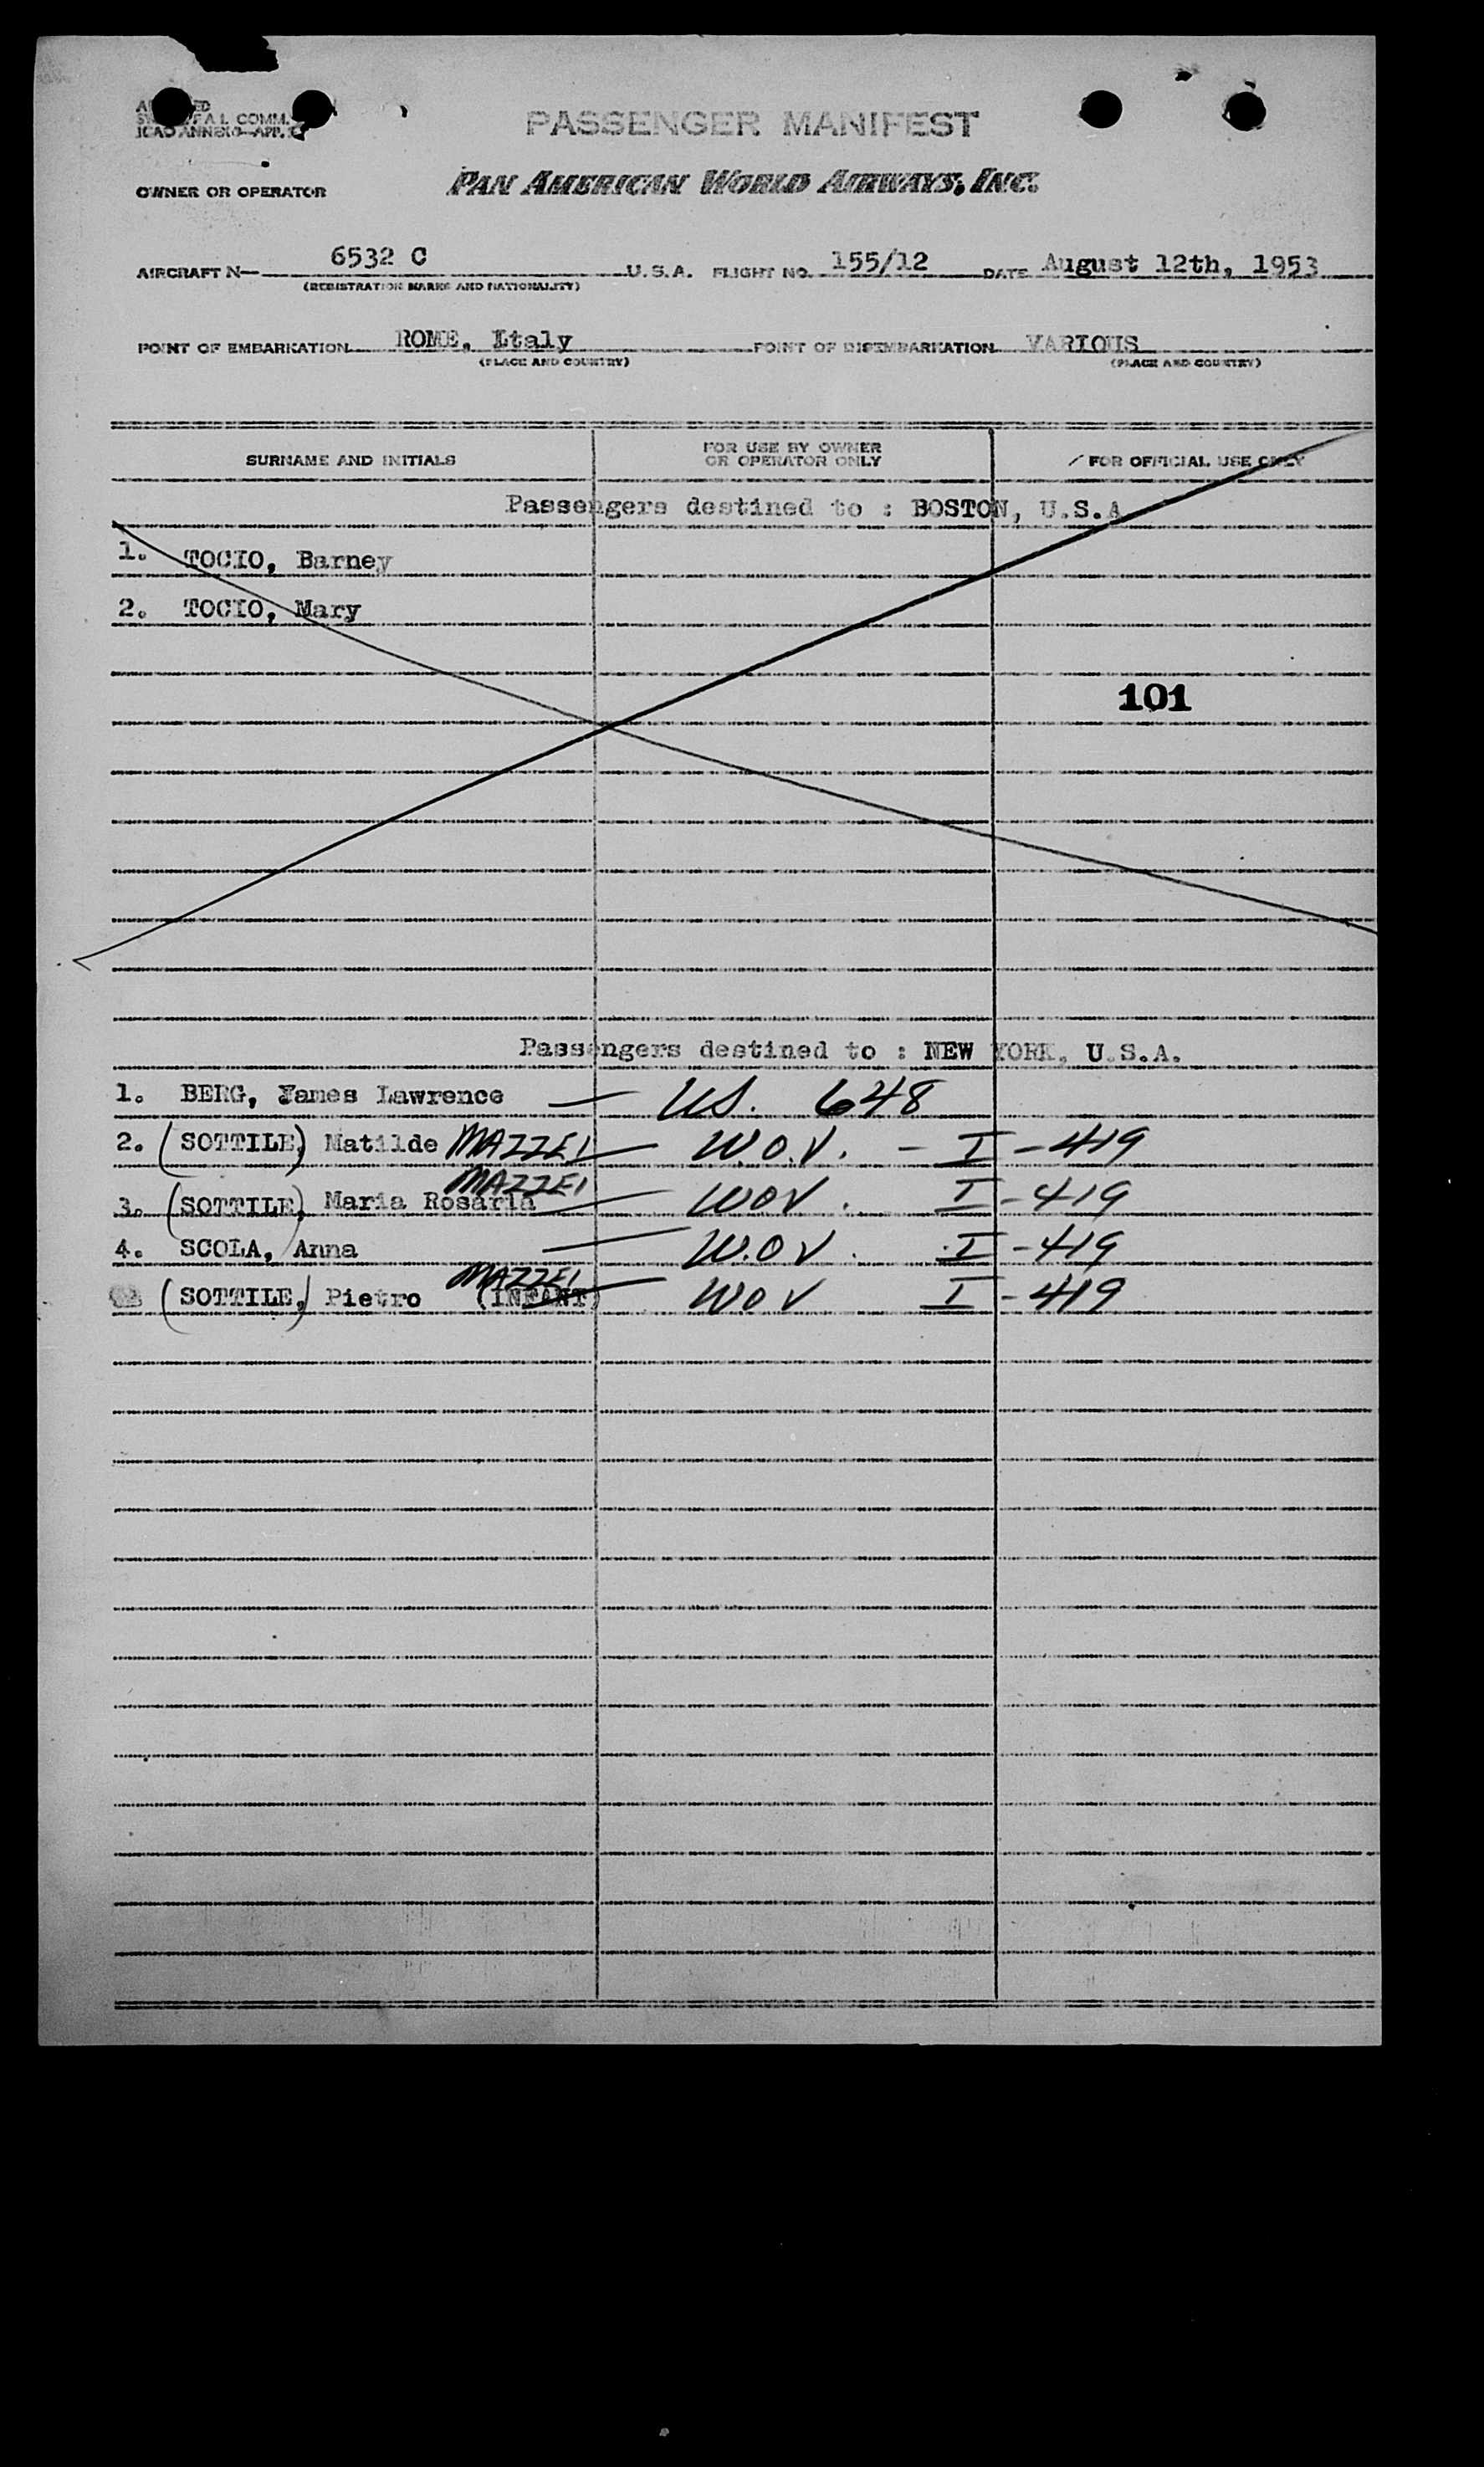 PASSENGER MANIFEST
COMM.
ICAO ANNEX 9—APP.
OWNER OR OPERATOR PAN AMERICAN WORLD AIRWAYS, INC.
AIRCRAFT N— 6532 C U.S.A. FLIGHT NO. 155/12 DATE August 12th, 1953
(REGISTRATION MARKS AND NATIONALITY)
POINT OF EMBARKATION ROME, Italy POINT OF DISEMBARKATION VARIOUS
(PLACE AND COUNTRY) (PLACE AND COUNTRY)
SURNAME AND INITIALS FOR USE BY OWNER OR OPERATOR ONLY FOR OFFICIAL USE ONLY
Passengers destined to : BOSTON, U.S.A
1. TOCIO, Barney
2. TOCIO, Mary
101
Passengers destined to : NEW YORK, U.S.A.
1. BERG, James Lawrence — US. 648
2. (SOTTILE,) Matilde MAZZEI — W.O.V. - I-419
3. (SOTTILE,) Maria Rosaria MAZZEI — WOV. I-419
4. SCOLA, Anna — W.OV. I-419
(SOTTILE,) Pietro MAZZEI (INFANT) — WOV I-419